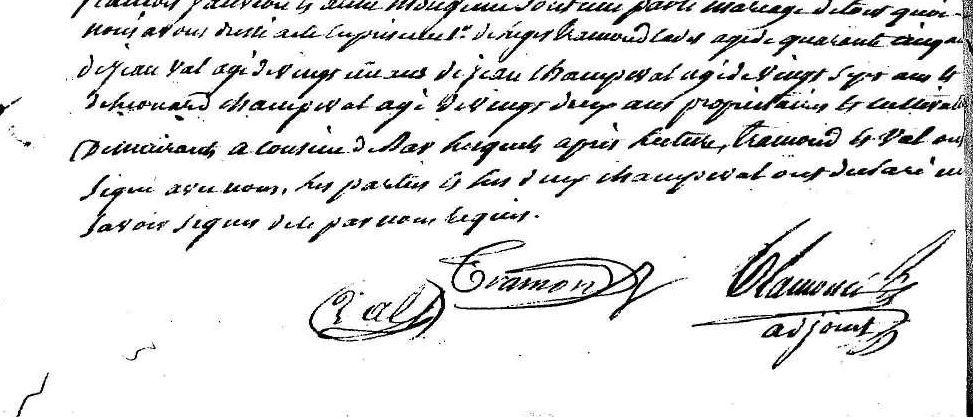 mariage de tout quoi
nous avons dressé acte en présence de Léger Tramond Cadet agé de quarante cinq ans
de Jean Val agé de vingt un ans de Jean Champeval agé de vingt sept ans et
de Léonard Champeval agé de vingt deux ans propriétaires et cultivat
demeurants a Cousin de Bar lesquels après lecture, Tramond et Val ont
signé avec nous, les parties et les deux Champeval ont declaré ne
savoir signer de ce par nous requis.
Val Tramond
Tramond
adjoint